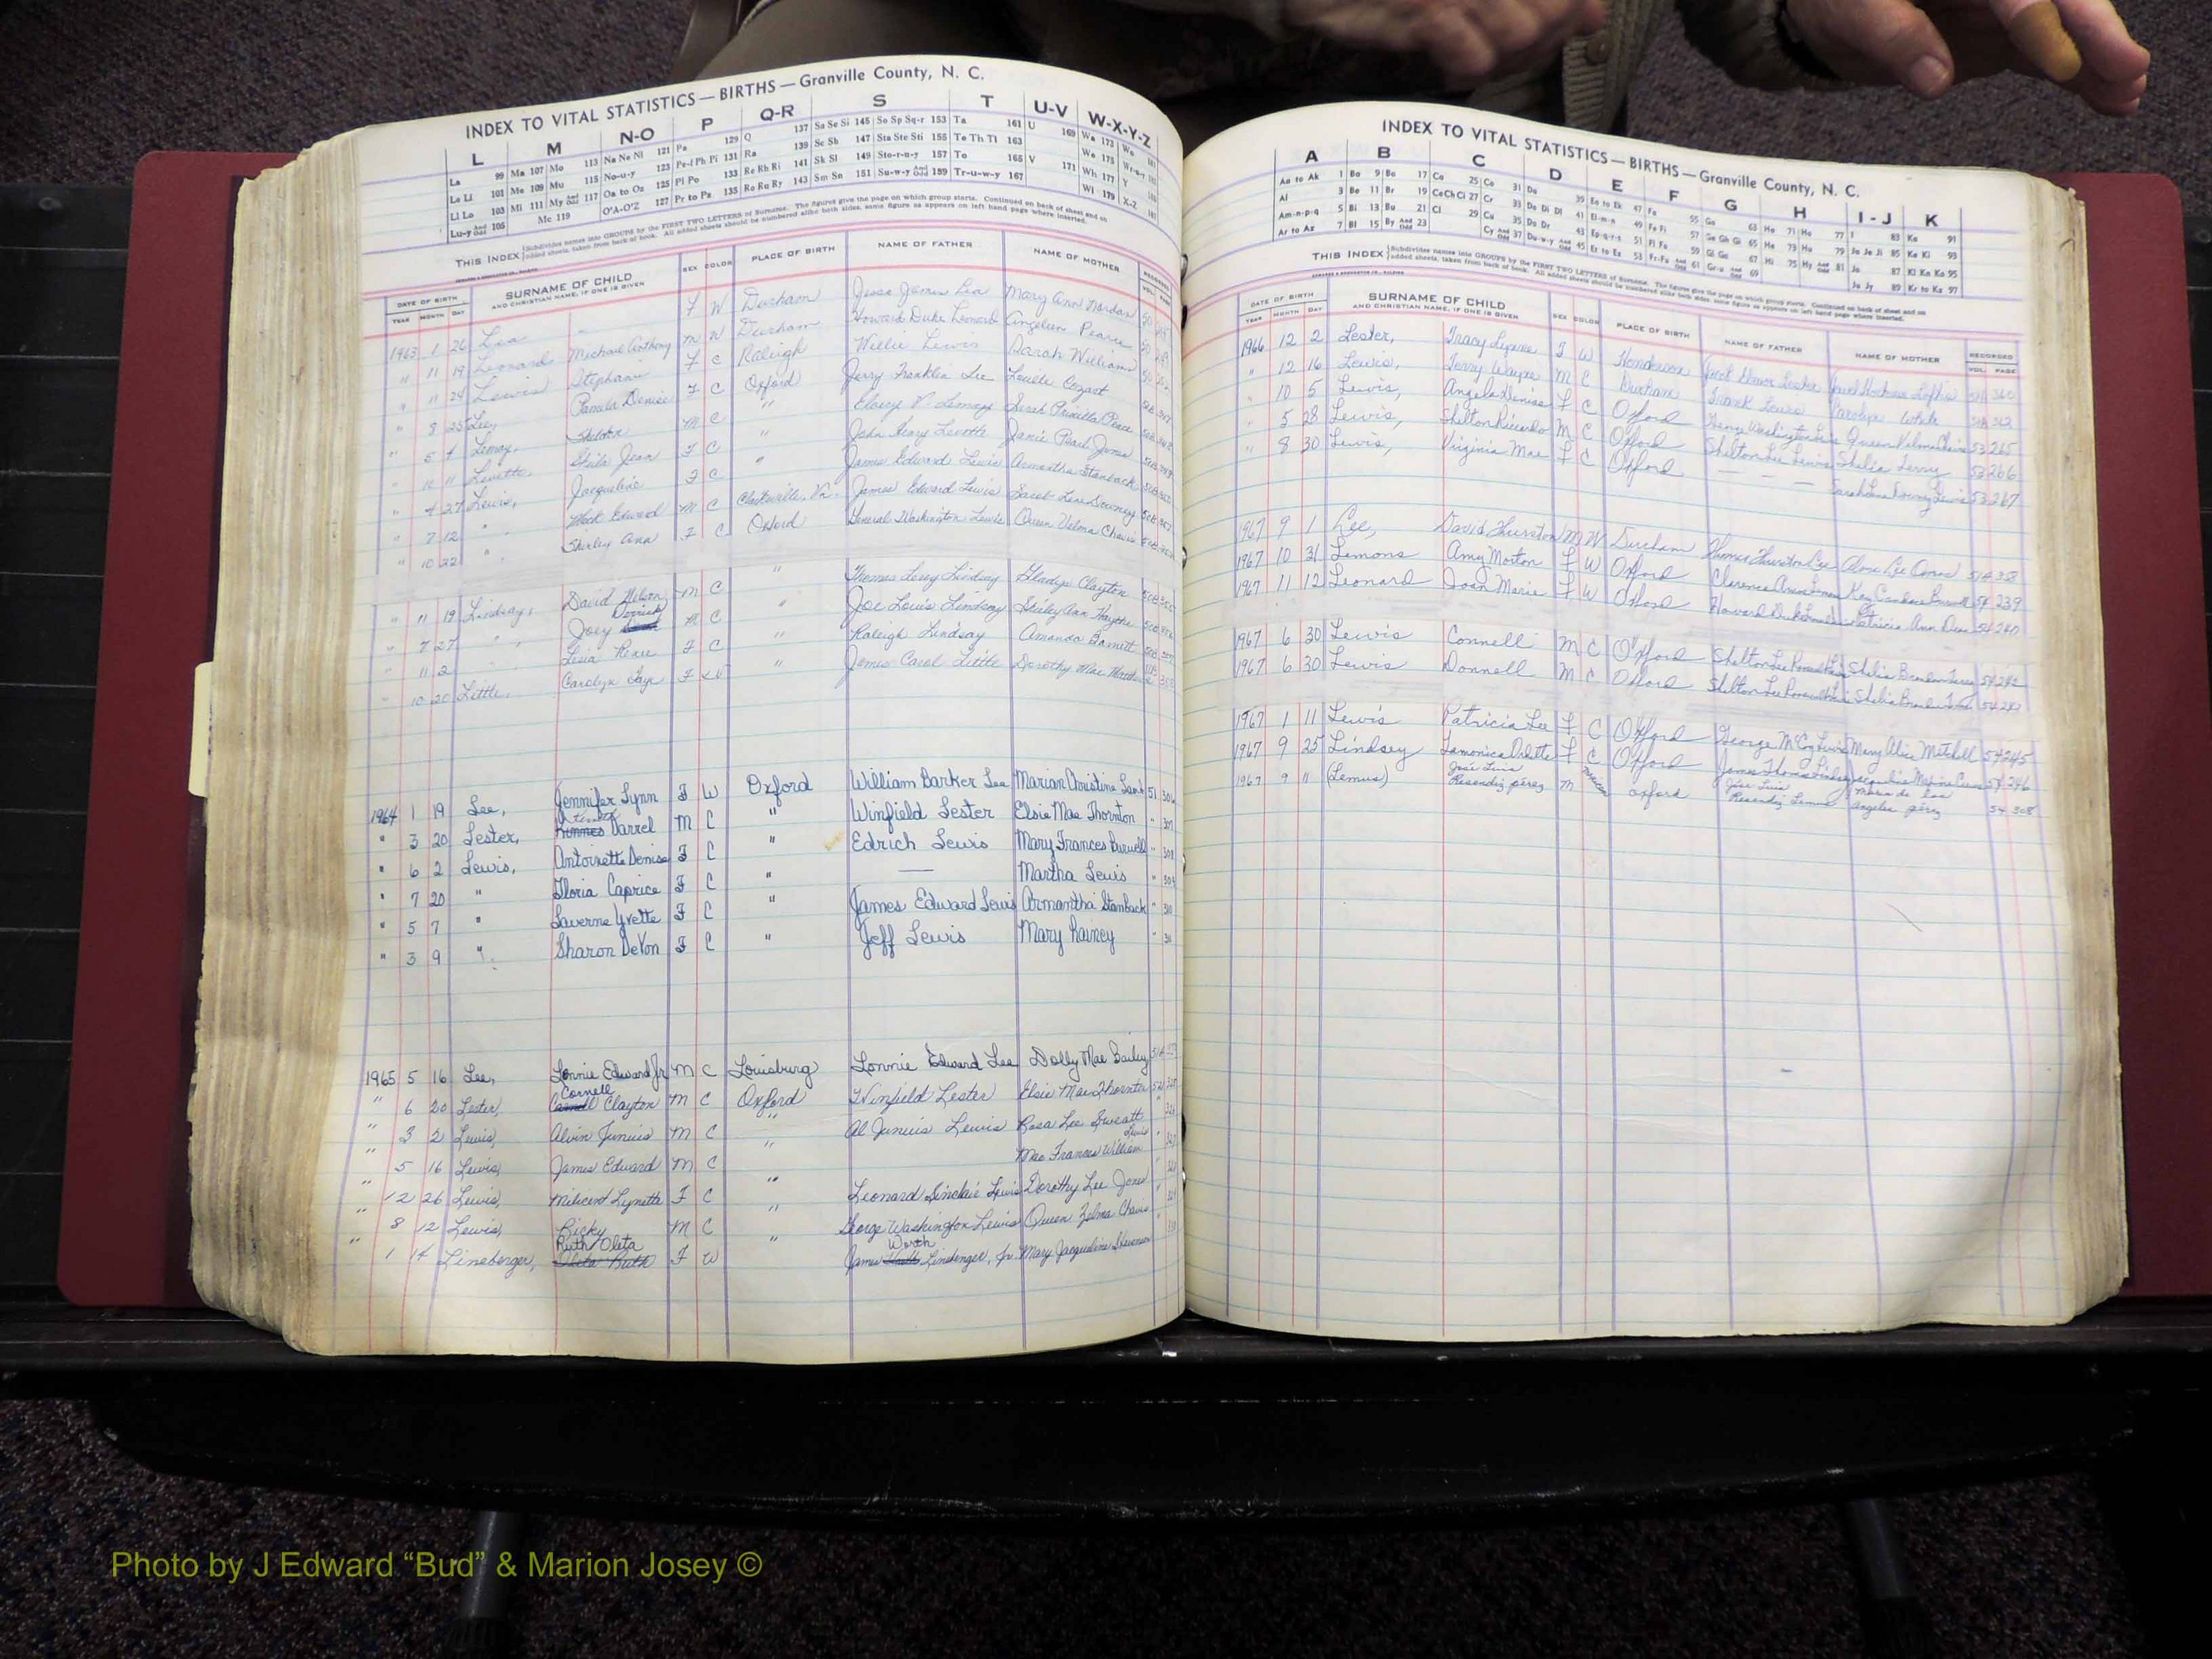 INDEX TO VITAL STATISTICS — BIRTHS — Granville County, N. C.
L M N-O P Q-R S T U-V W-X-Y-Z
La 99 Ma 107 Mo 113 Na Ne Ni 121 Pa 129 Q 137 Sa Se Si 145 So Sp Sq-r 153 Ta 161 U 169 Wa 173 Wo
Le Li 101 Me 109 Mu 115 No-u-y 123 Pe-f Ph Pi 131 Ra 139 Sc Sh 147 Sta Ste Sti 155 Te Th Ti 163 We 175 Wr-u-y
Ll Lo 103 Mi 111 My And Odd 117 Oa to Oz 125 Pl Po 133 Re Rh Ri 141 Sk Sl 149 Sto-r-u-y 157 To 165 V 171 Wh 177 Y
Lu-y And Odd 105 Mc 119 O'A-O'Z 127 Pr to Pz 135 Ro Ru Ry 143 Sm Sn 151 Su-w-y And Odd 159 Tr-u-w-y 167 Wi 179 X-Z
THIS INDEX Subdivides names into GROUPS by the FIRST TWO LETTERS of Surname. The figures give the page on which group starts. Continued on back of sheet and on
added sheets, taken from back of book. All added sheets should be numbered alike both sides, same figure as appears on left hand page where inserted.
DATE OF BIRTH SURNAME OF CHILD SEX COLOR PLACE OF BIRTH NAME OF FATHER NAME OF MOTHER RECORDED
YEAR MONTH DAY AND CHRISTIAN NAME, IF ONE IS GIVEN VOL. PAGE
1963 1 26 Lea - F W Durham Jesse James Lea Mary Ann Nordan 50
" 11 19 Leonard Michael Anthony M W Durham Howard Duke Leonard Angeleen Pearce 50
" 11 24 Lewis Stephanie F C Raleigh Willie Lewis Sarah Williams 50
" 8 25 Lee, Pamela Denise F C Oxford Jerry Franklin Lee Louise Cozart
" 5 4 Lemay, Sheldon M C " Elvery N. Lemay Sarah Priscilla Peace
" 10 11 Levette, Sheila Jean F C " John Henry Levette Janie Pearl Jones
" 4 27 Lewis, Jacqueline F C " James Edward Lewis Armantha Stanback
" 7 12 " Mark Edward M C Clarksville, Va. James Edward Lewis Sarah Lane Downey
" 10 22 " Shirley Ann F C Oxford General Washington Lewis Queen Velma Chavis
" 11 19 Lindsay, David Nelson M C " Thomas Leroy Lindsay Gladys Clayton
" 7 27 " Joey Derrick M C " Joe Louis Lindsay Shirley Ann Haythe
" 11 2 " Lesia Renee F C " Raleigh Lindsay Amanda Barnett
" 10 20 Little, Carolyn Faye F W " James Carol Little Dorothy Mae
1964 1 19 Lee, Jennifer Lynn F W Oxford William Barker Lee Marian Christine 51 306
" 3 20 Lester, Darrel M C " Winfield Lester Elsie Mae Thornton " 307
" 6 2 Lewis, Antoinette Denise F C " Edrich Lewis Mary Frances Burwell " 308
" 7 20 " Gloria Caprice F C " — Martha Lewis " 309
" 5 7 " Laverne Yvette F C " James Edward Lewis Armantha Stanback " 310
" 3 9 " Sharon DeVon F C " Jeff Lewis Mary Rainey " 311
1965 5 16 Lee, Lonnie Edward Jr M C Louisburg Lonnie Edward Lee Dolly Mae Bailey
" 6 20 Lester, Cornell Clayton M C Oxford Winfield Lester Elsie Mae Thornton 52
" 3 2 Lewis, Alvin Junius M C " Al Junius Lewis Rosa Lee Sweatt
" 5 16 Lewis, James Edward M C " Mae Frances William Lewis
" 12 26 Lewis, Milicent Lynette F C " Leonard Sinclair Lewis Dorothy Lee Jones
" 8 12 Lewis, Ricky M C " George Washington Lewis Queen Zelma Chavis
" 1 14 Lineberger, Ruth Oleta F W " James Worth Lineberger, Jr. Mary Jacqueline Stevenson
INDEX TO VITAL STATISTICS — BIRTHS — Granville County, N. C.
A B C D E F G H I-J K
Aa to Ak 1 Ba 9 Bo 17 Ca 25 Co 31 Da 39 Ea to Ek 47 Fa 55 Ga 63 Ha 71 Ho 77 I 83 Ka 91
Al 3 Be 11 Br 19 Ce Ch Ci 27 Cr 33 De Di Dl 41 El-m-n 49 Fe Fi 57 Ge Gh Gi 65 He 73 Hu 79 Ja Je Ji 85 Ke Ki 93
Am-n-p-q 5 Bi 13 Bu 21 Cl 29 Cu 35 Do Dr 43 Ep-q-r-s 51 Fl Fo 59 Gl Go 67 Hi 75 Hy And Odd 81 Jo 87 Kl Kn Ko 95
Ar to Az 7 Bl 15 By And Odd 23 Cy And Odd 37 Du-w-y And Odd 45 Et to Ez 53 Fr-Fu And Odd 61 Gr-u And Odd 69 Ju Jy 89 Kr to Kz 97
THIS INDEX Subdivides names into GROUPS by the FIRST TWO LETTERS of Surname. The figures give the page on which group starts. Continued on back of sheet and on
added sheets, taken from back of book. All added sheets should be numbered alike both sides, same figure as appears on left hand page where inserted.
DATE OF BIRTH SURNAME OF CHILD SEX COLOR PLACE OF BIRTH NAME OF FATHER NAME OF MOTHER RECORDED
YEAR MONTH DAY AND CHRISTIAN NAME, IF ONE IS GIVEN VOL. PAGE
1966 12 2 Lester, Tracy F W Henderson Lester
" 12 16 Lewis, Terry Wayne M C Durham Frank Lewis Carolyn White
" 10 5 Lewis, Angela Denise F C Oxford George Washington Lewis Queen Velma Chavis 53 265
" 5 28 Lewis, Shelton Riccardo M C Oxford Shelton Lee Lewis Shelia Terry 53 266
" 8 30 Lewis, Virginia Mae F C Oxford — — — Sarah Lane Downey Lewis 53 267
1967 9 1 Lee, David Thurston M W Durham Thomas Thurston Lee
1967 10 31 Lemons Amy Morton F W Oxford Clarence Kay Candace Burwell 54 239
1967 11 12 Leonard Joan Marie F W Oxford Howard Duke Leonard Patricia Ann 54 240
1967 6 30 Lewis Connell M C Oxford Shelton Lee Roosevelt Lewis Shelia 54 242
1967 6 30 Lewis Donnell M C Oxford Shelton Lee Roosevelt Lewis Shelia 54
1967 1 11 Lewis Patricia Lee F C Oxford George McCoy Lewis Mary Alice Mitchell 54 245
1967 9 25 Lindsey Lamonica F C Oxford James Thomas Lindsey 54 246
1967 9 11 (Lemus) José Luis Resendiz pérez M Mexican oxford José Luis Resendiz Lemus Maria de los Angeles pérez 54 308
Photo by J Edward “Bud” & Marion Josey ©